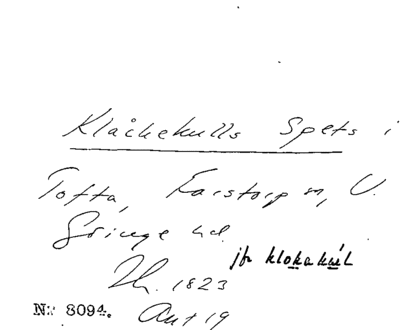 Klåckekulls Spets i
Tofta, Farstorp sn, V.
Göinge hd.
jfr klokakúl
1823
Nr 8094. Akt 19